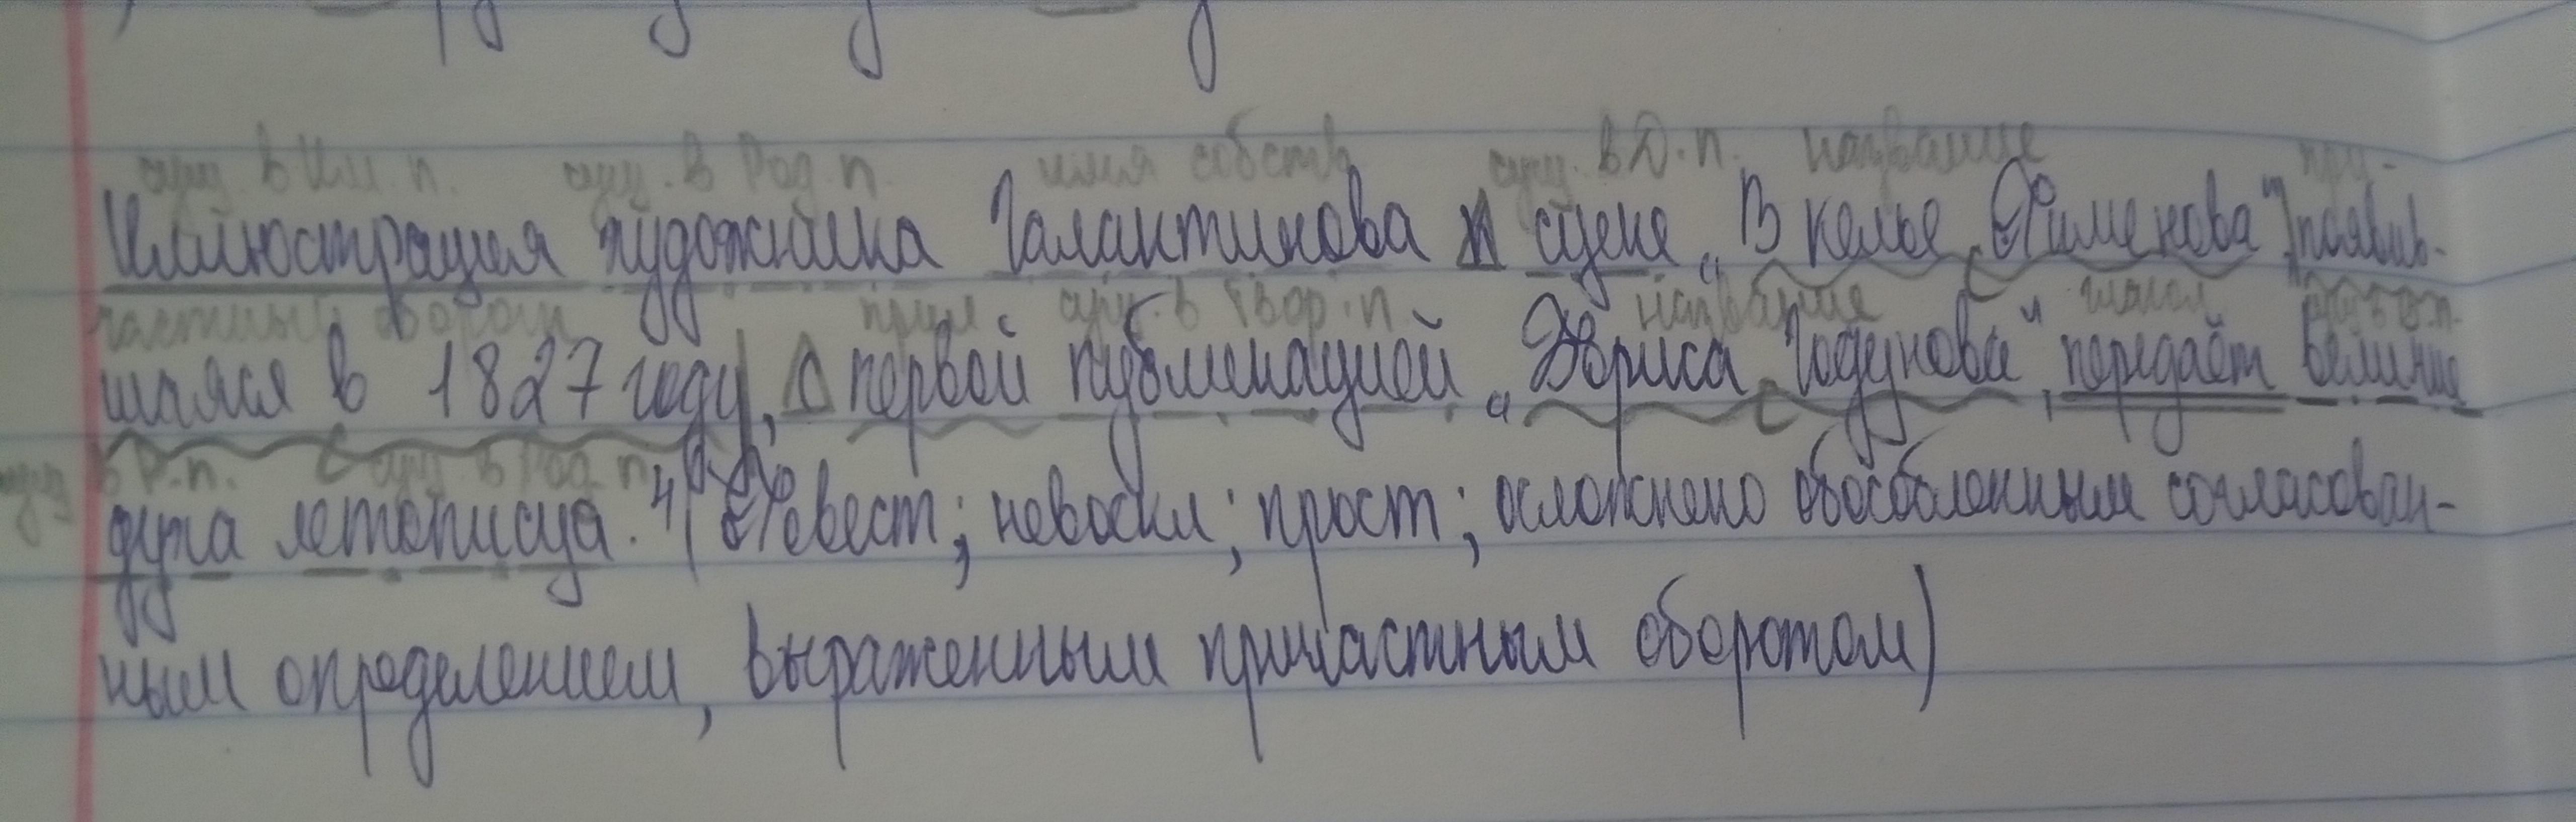 сущ. в Им. п. сущ. в Род. п. имя собств сущ. в Д. п. название при-
Иллюстрация художника Галактинова к сцене „В келье Фименова", появив-
частный оборот прил сущ. в Твор. п. название глагол сущ. в В.п.
шаяся в 1827 году, с первой публикацией „Бориса Годунова", передаёт величие
сущ в Р.п. сущ. в Род п.
духа летописца. 4(Повест; невоскл; прост; осложнено обособленным согласован-
ным определением, выраженным причастным оборотом)